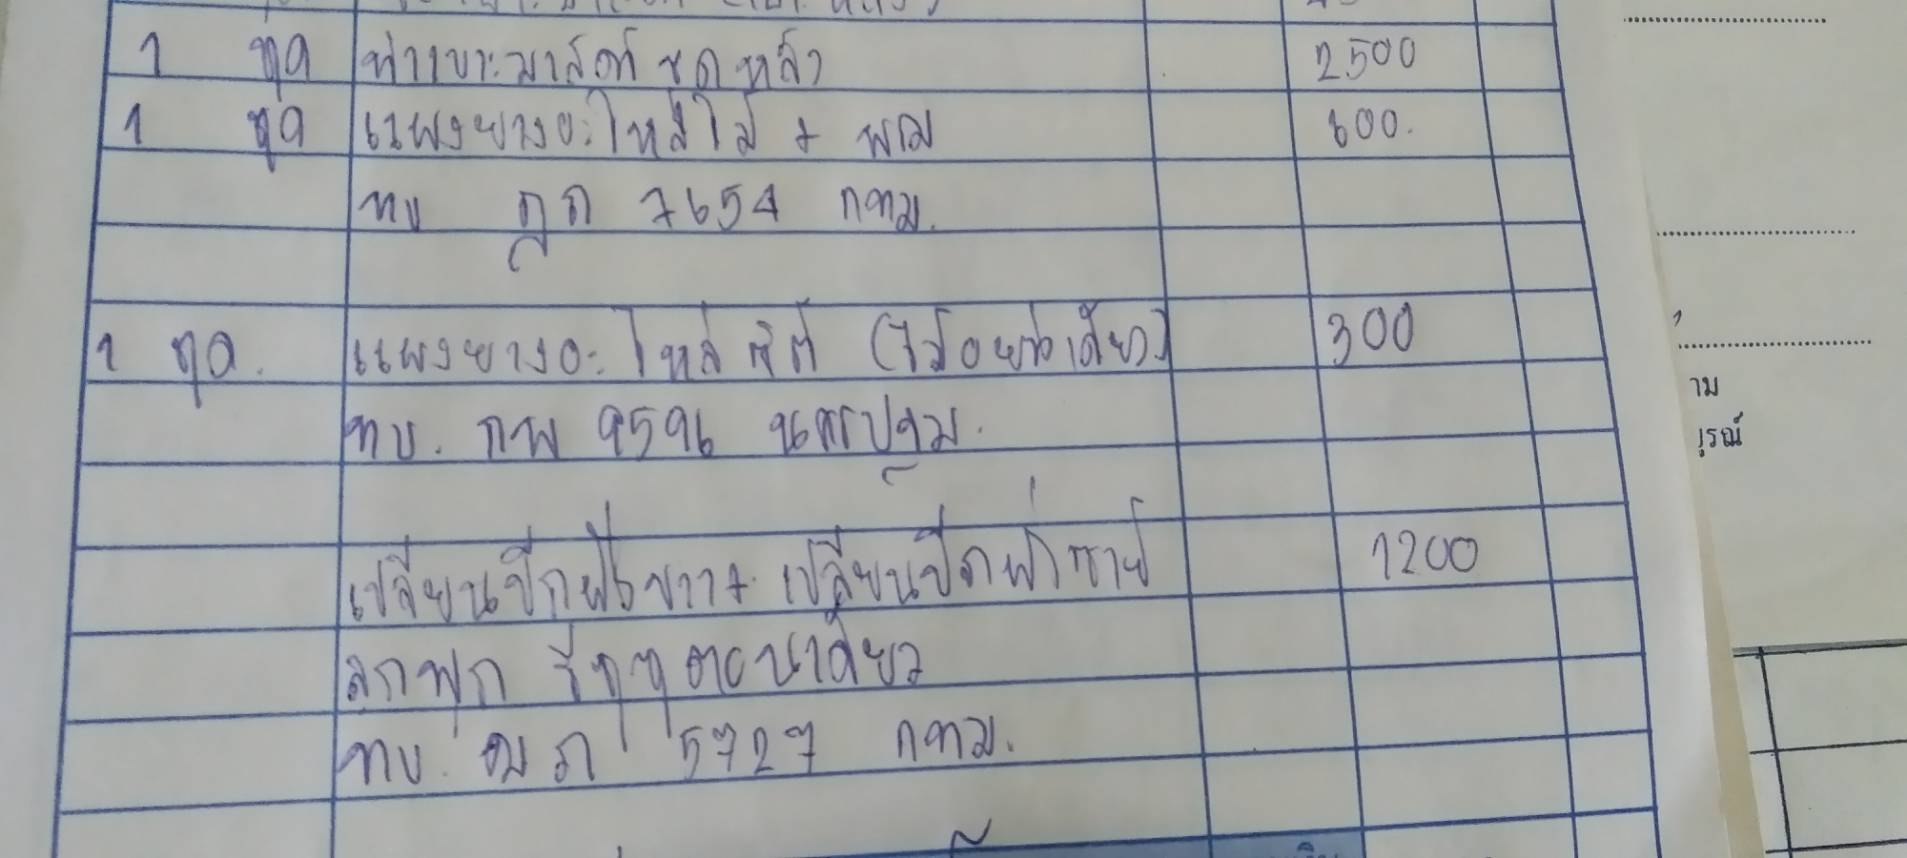 1 ชุด ทำเบาะมาสด้า ชุดหลัง 2500
1 ชุด แผงยางอะไหล่ใส่ + พรม 600.
ทบ ฎภ 7654 กทม.
1 ชุด. แผงยางอะไหล่ซิตี้ (เดียว) 300
ทบ. กพ 9596 นครปฐม.
เปลี่ยนปีกฝั่งขวา + เปลี่ยนปีกฝาซ้าย 1200
ลูกฟูก ตอนเดียว
ทบ. ฒภ 5727 กทม.
าม
บูรณ์